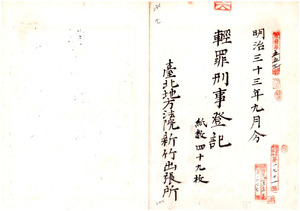 明治三十三年九月分
輕罪刑事登記
紙數四十九枚
臺北地方法院新竹出張所